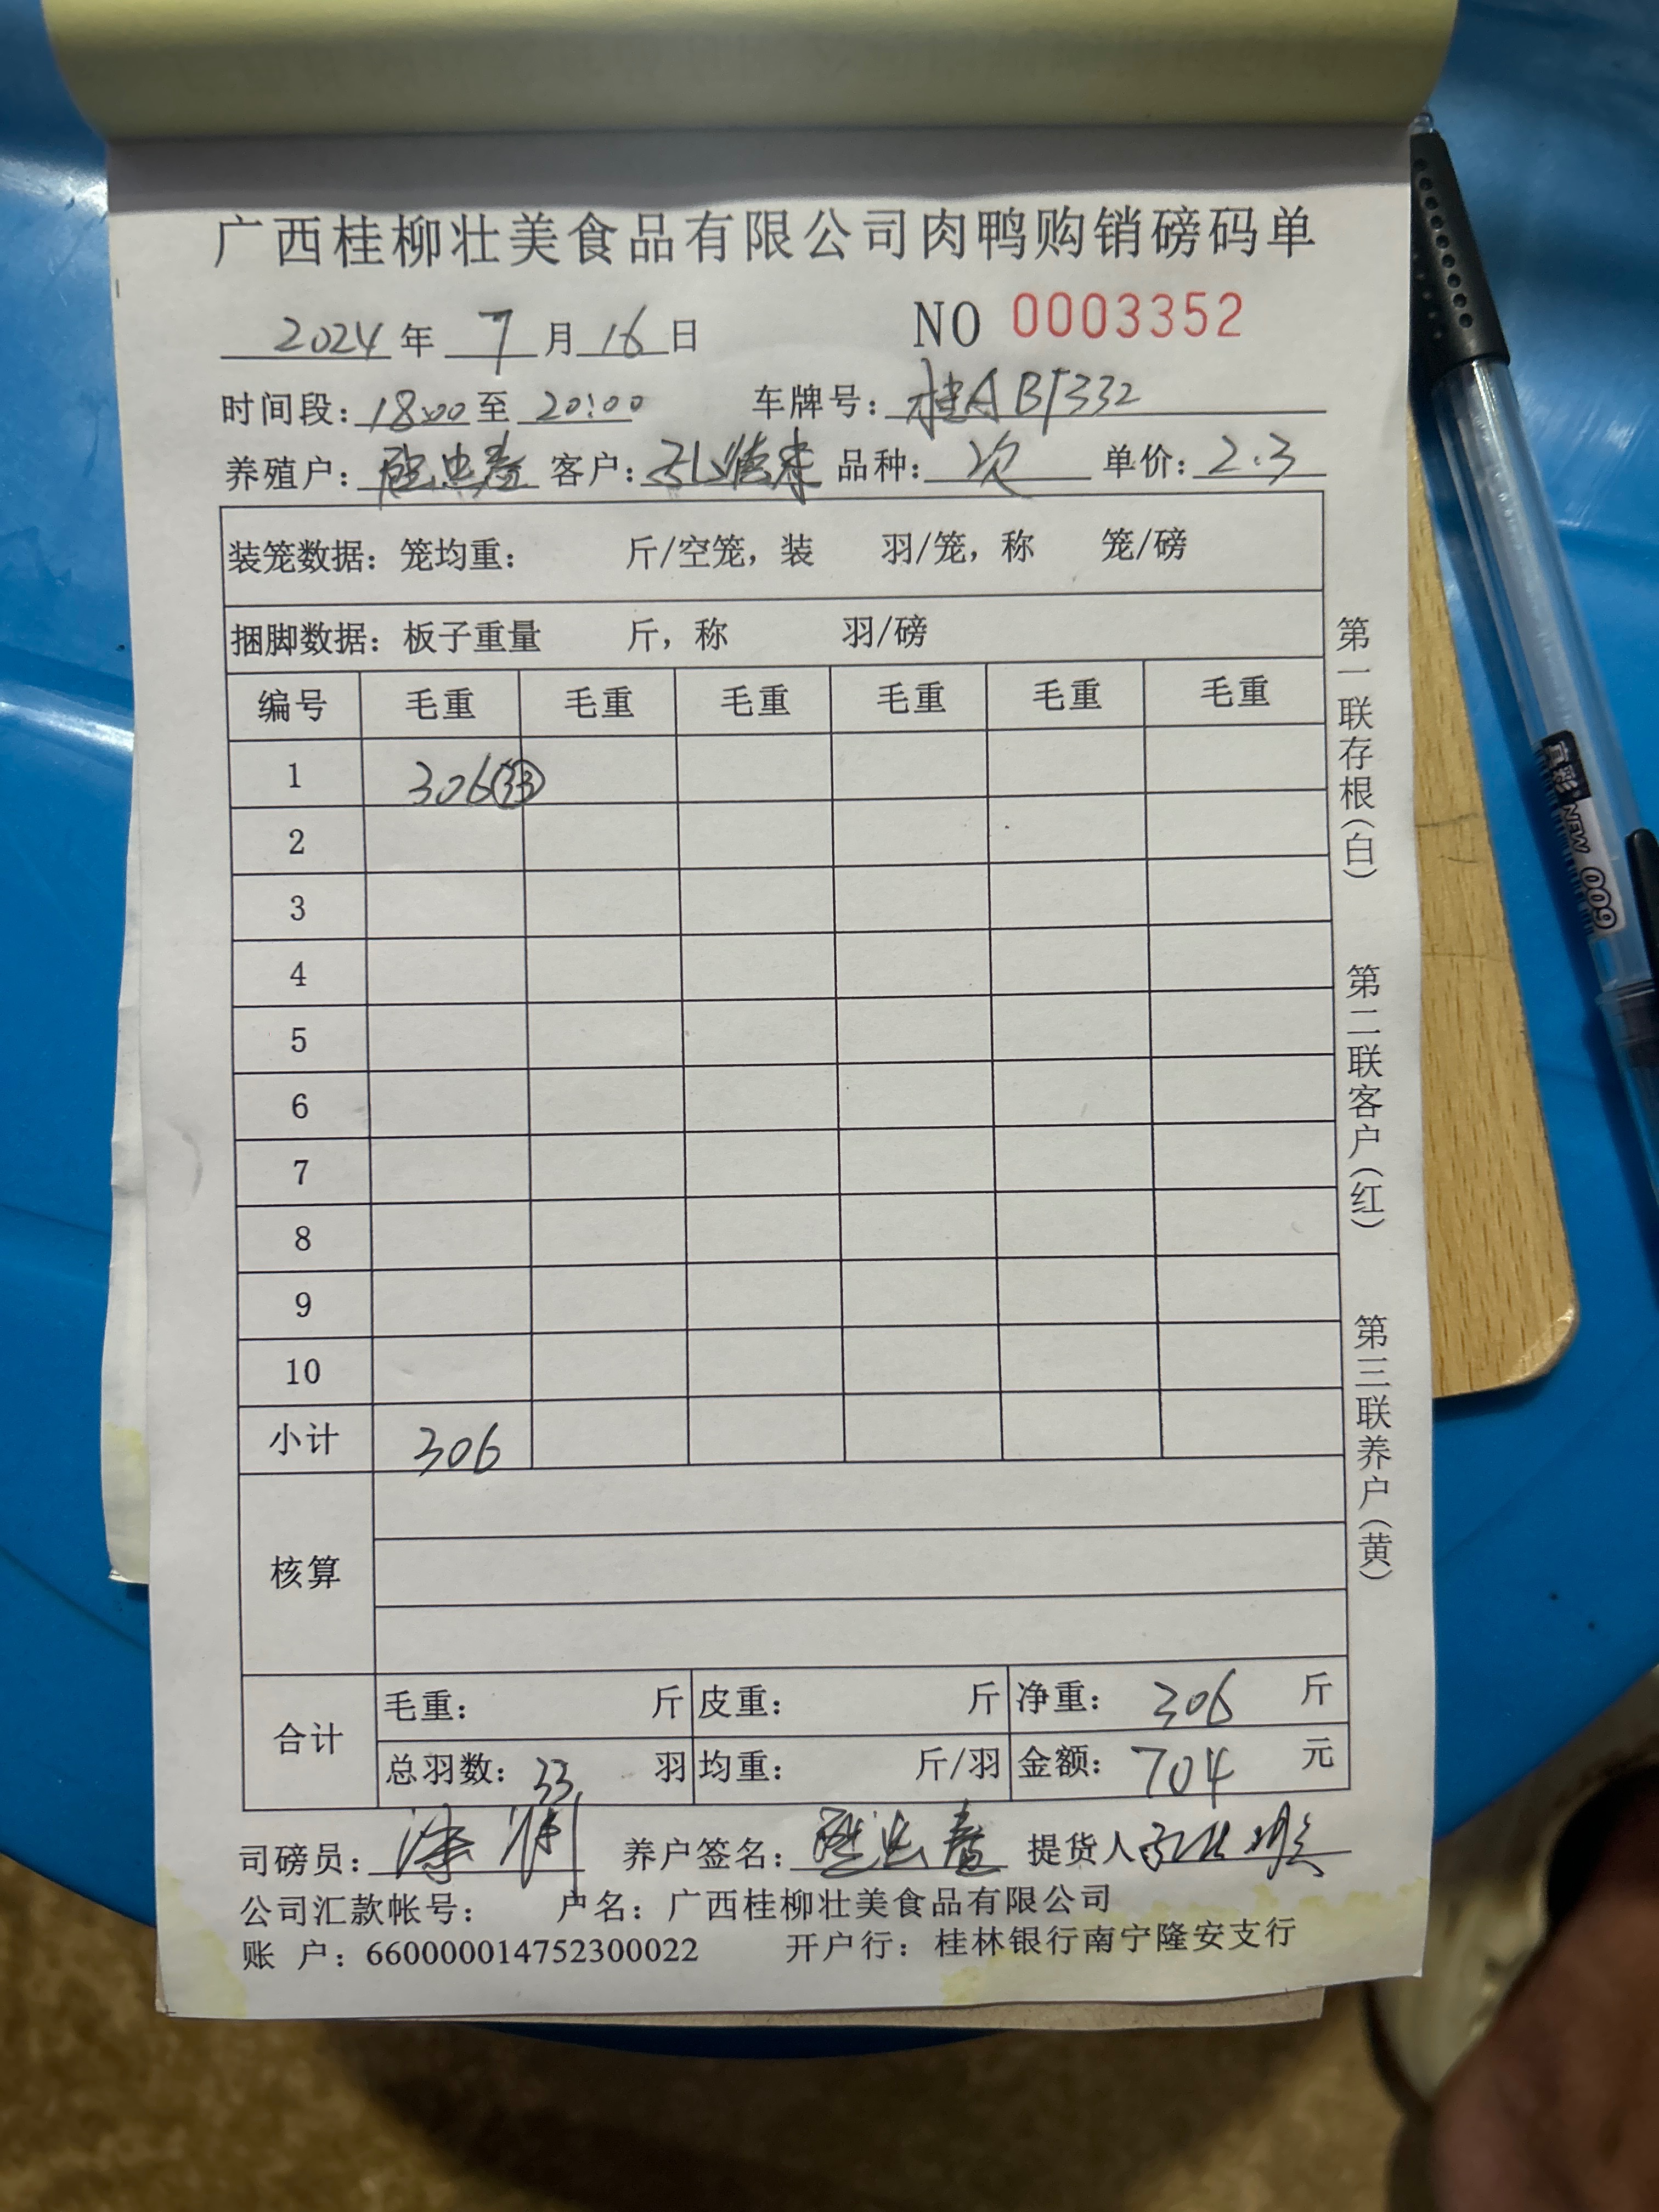 广西桂柳壮美食品有限公司肉鸭购销磅码单
2024年 7月16日 NO 0003352
时间段：18:00至 20:00 车牌号：桂A
养殖户： 客户： 品种：次 单价：2.3
装笼数据：笼均重： 斤/空笼，装 羽/笼，称 笼/磅
捆脚数据：板子重量 斤，称 羽/磅
编号 毛重 毛重 毛重 毛重 毛重 毛重
1 306(33)
2
3
4
5
6
7
8
9
10
小计 306
核算
合计
毛重： 斤 皮重： 斤 净重：306 斤
总羽数：33 羽 均重： 斤/羽 金额：704 元
司磅员： 养户签名： 提货人
公司汇款帐号： 户名：广西桂柳壮美食品有限公司
账 户：660000014752300022 开户行：桂林银行南宁隆安支行
第一联存根（白）
第二联客户（红）
第三联养户（黄）
NEW 009